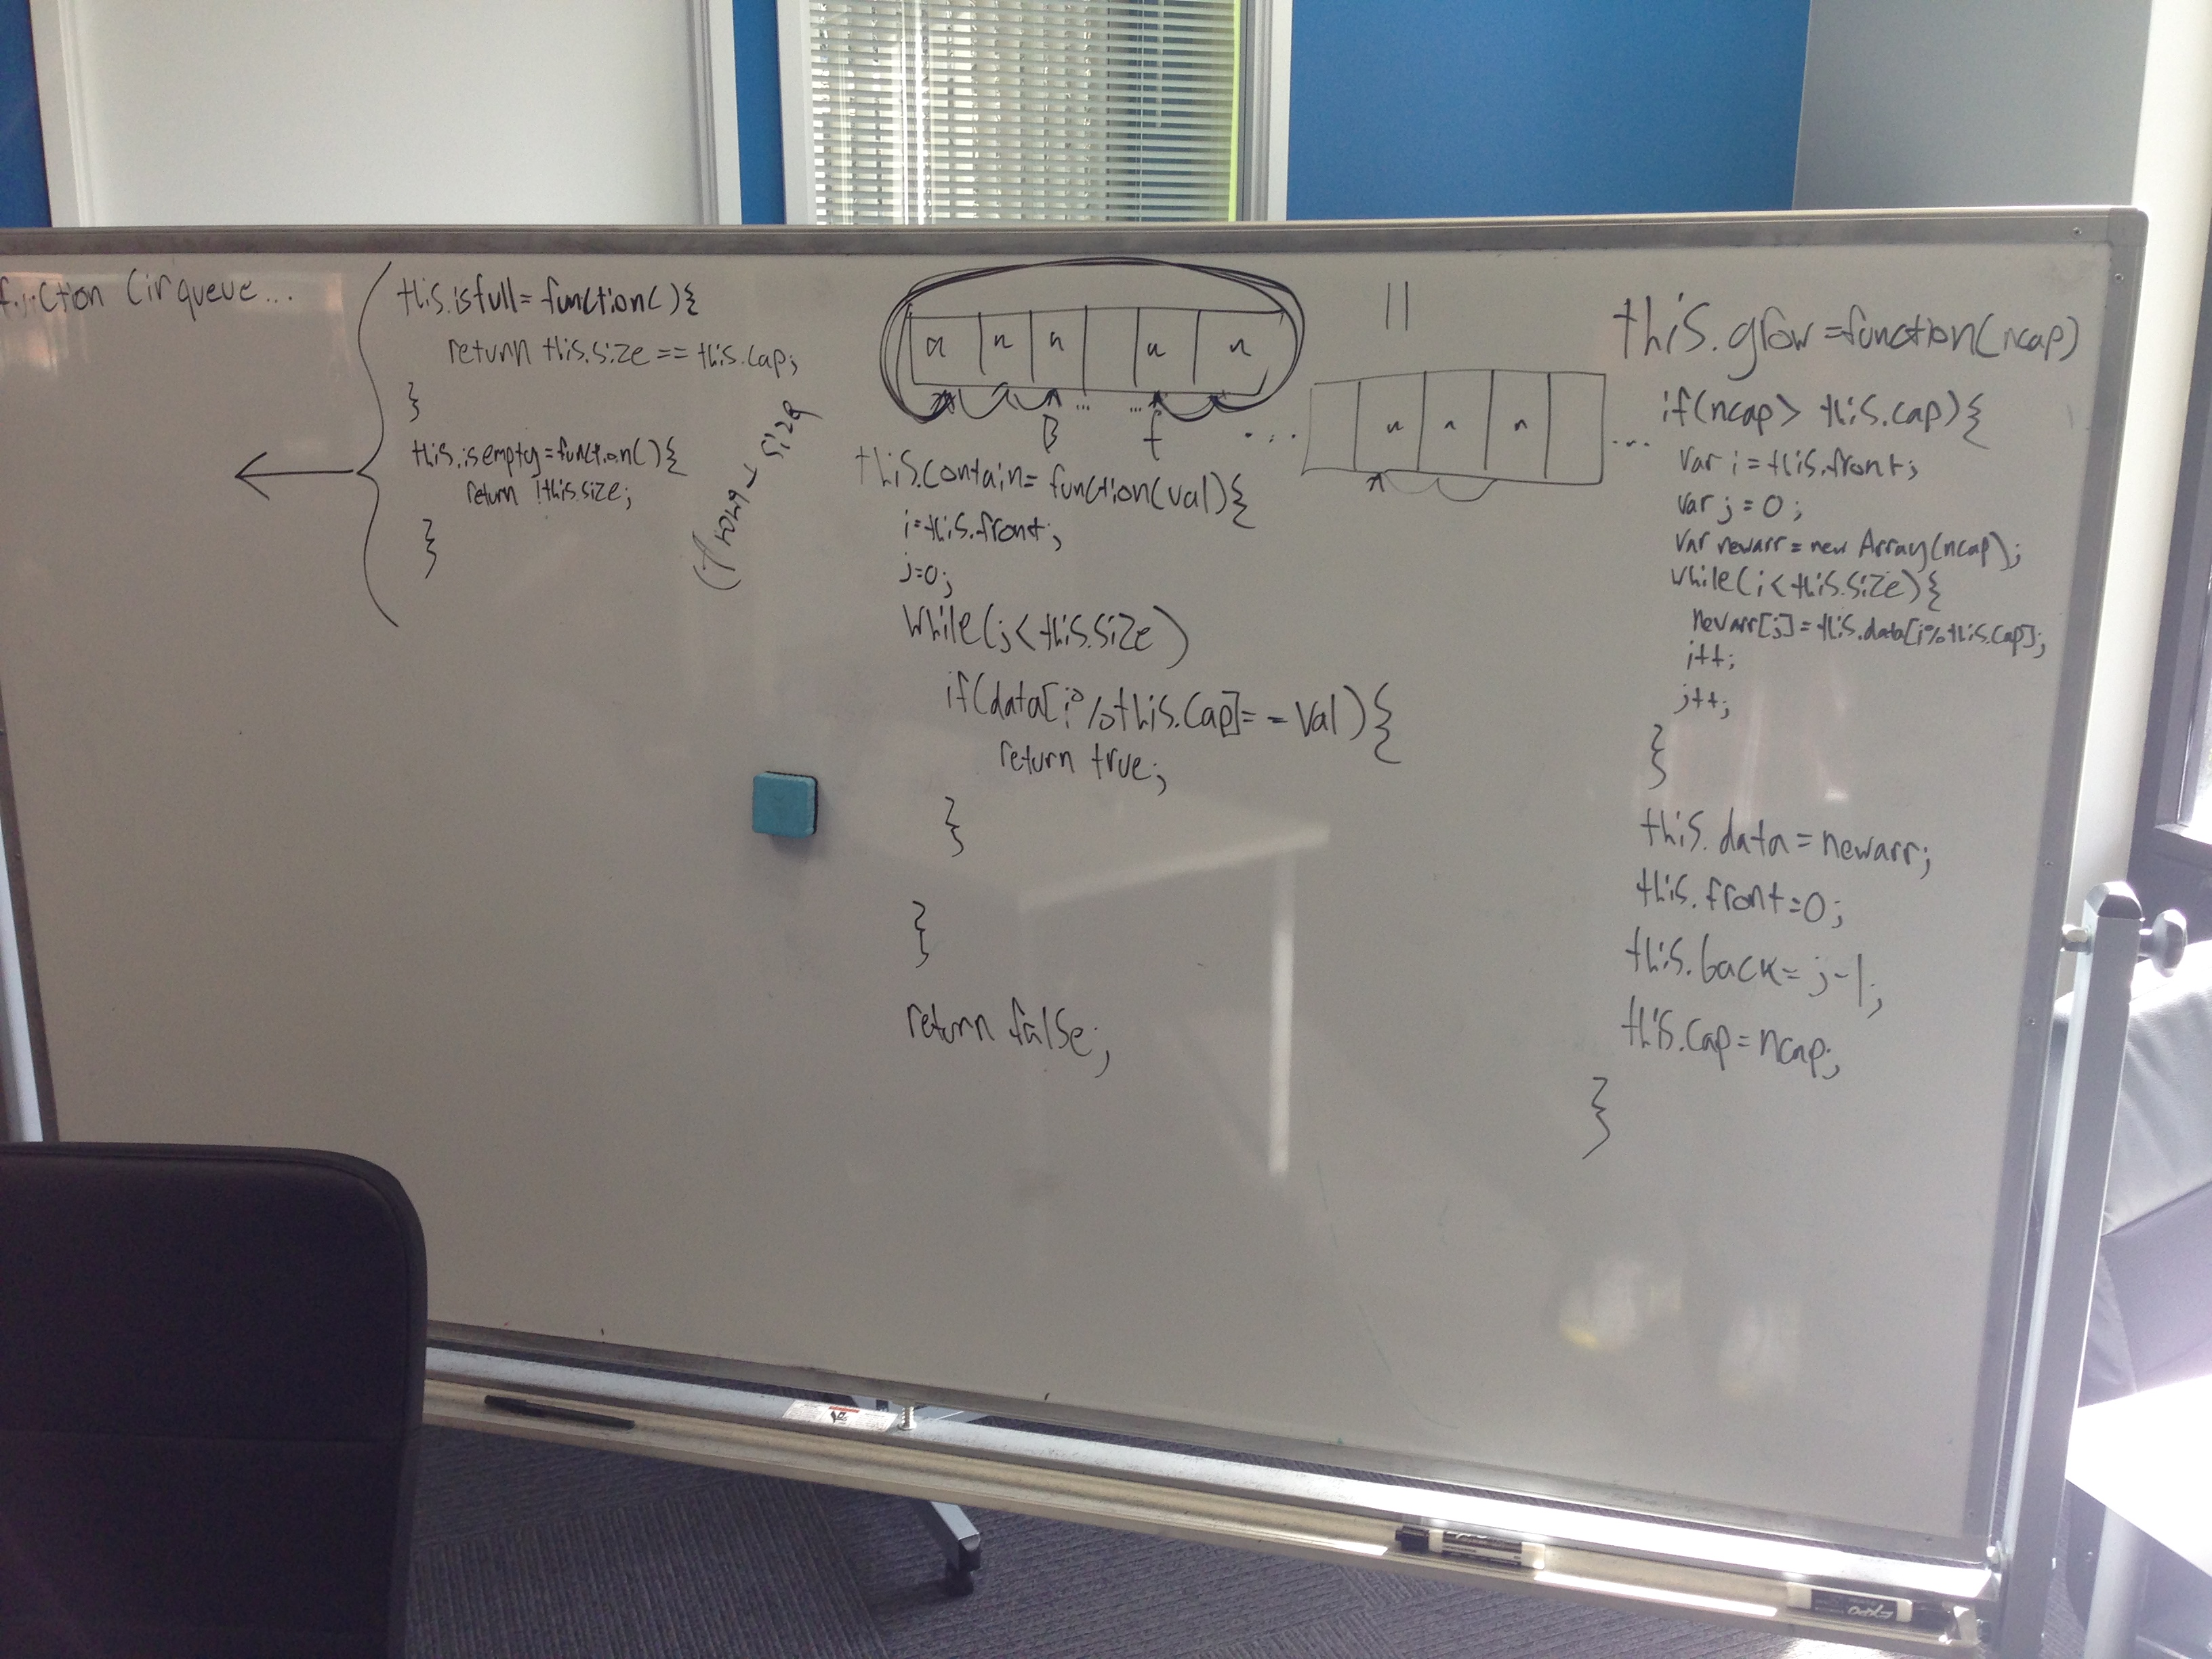 function Cirqueue...
this.isfull=function(){
return this.size == this.cap;
}
this.isempty=function(){
return !this.size;
}
size
n n n n n
... ...
B f
... ...
n n n
this.contain= function(val){
i=this.front;
j=0;
while(j<this.size)
if(data[i%this.cap]==val){
return true;
}
}
return false;
this.grow=function(ncap)
if(ncap> this.cap){
var i=this.front;
var j=0;
var newarr=new Array(ncap);
while(i<this.size){
newarr[j]=this.data[i%this.cap];
i++;
j++;
}
this.data=newarr;
this.front=0;
this.back=j-1;
this.cap=ncap;
}
EXPO